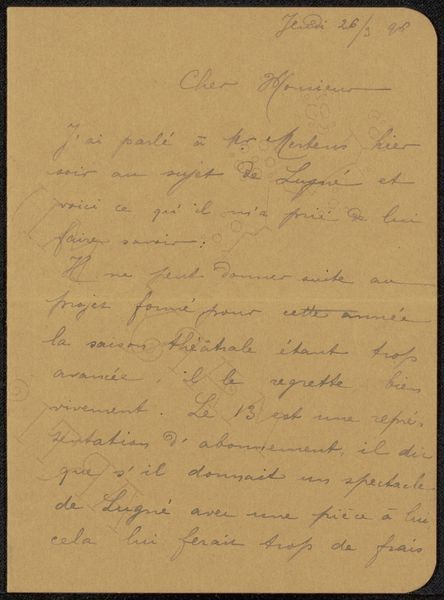 Jeudi 26/3 96
Cher Monsieur
J'ai parlé à Mr Mertens hier
soir au sujet de Lugné et
voici ce qu'il m'a prié de lui
faire savoir:
Il ne peut donner suite au
projet formé pour cette année
la saison théâtrale étant trop
avancée, il le regrette bien
vivement. Le 13 est une repré-
sentation d'abonnement, il dit
que s'il donnait un spectacle
de Lugné avec une pièce à lui
cela lui ferait trop de frais